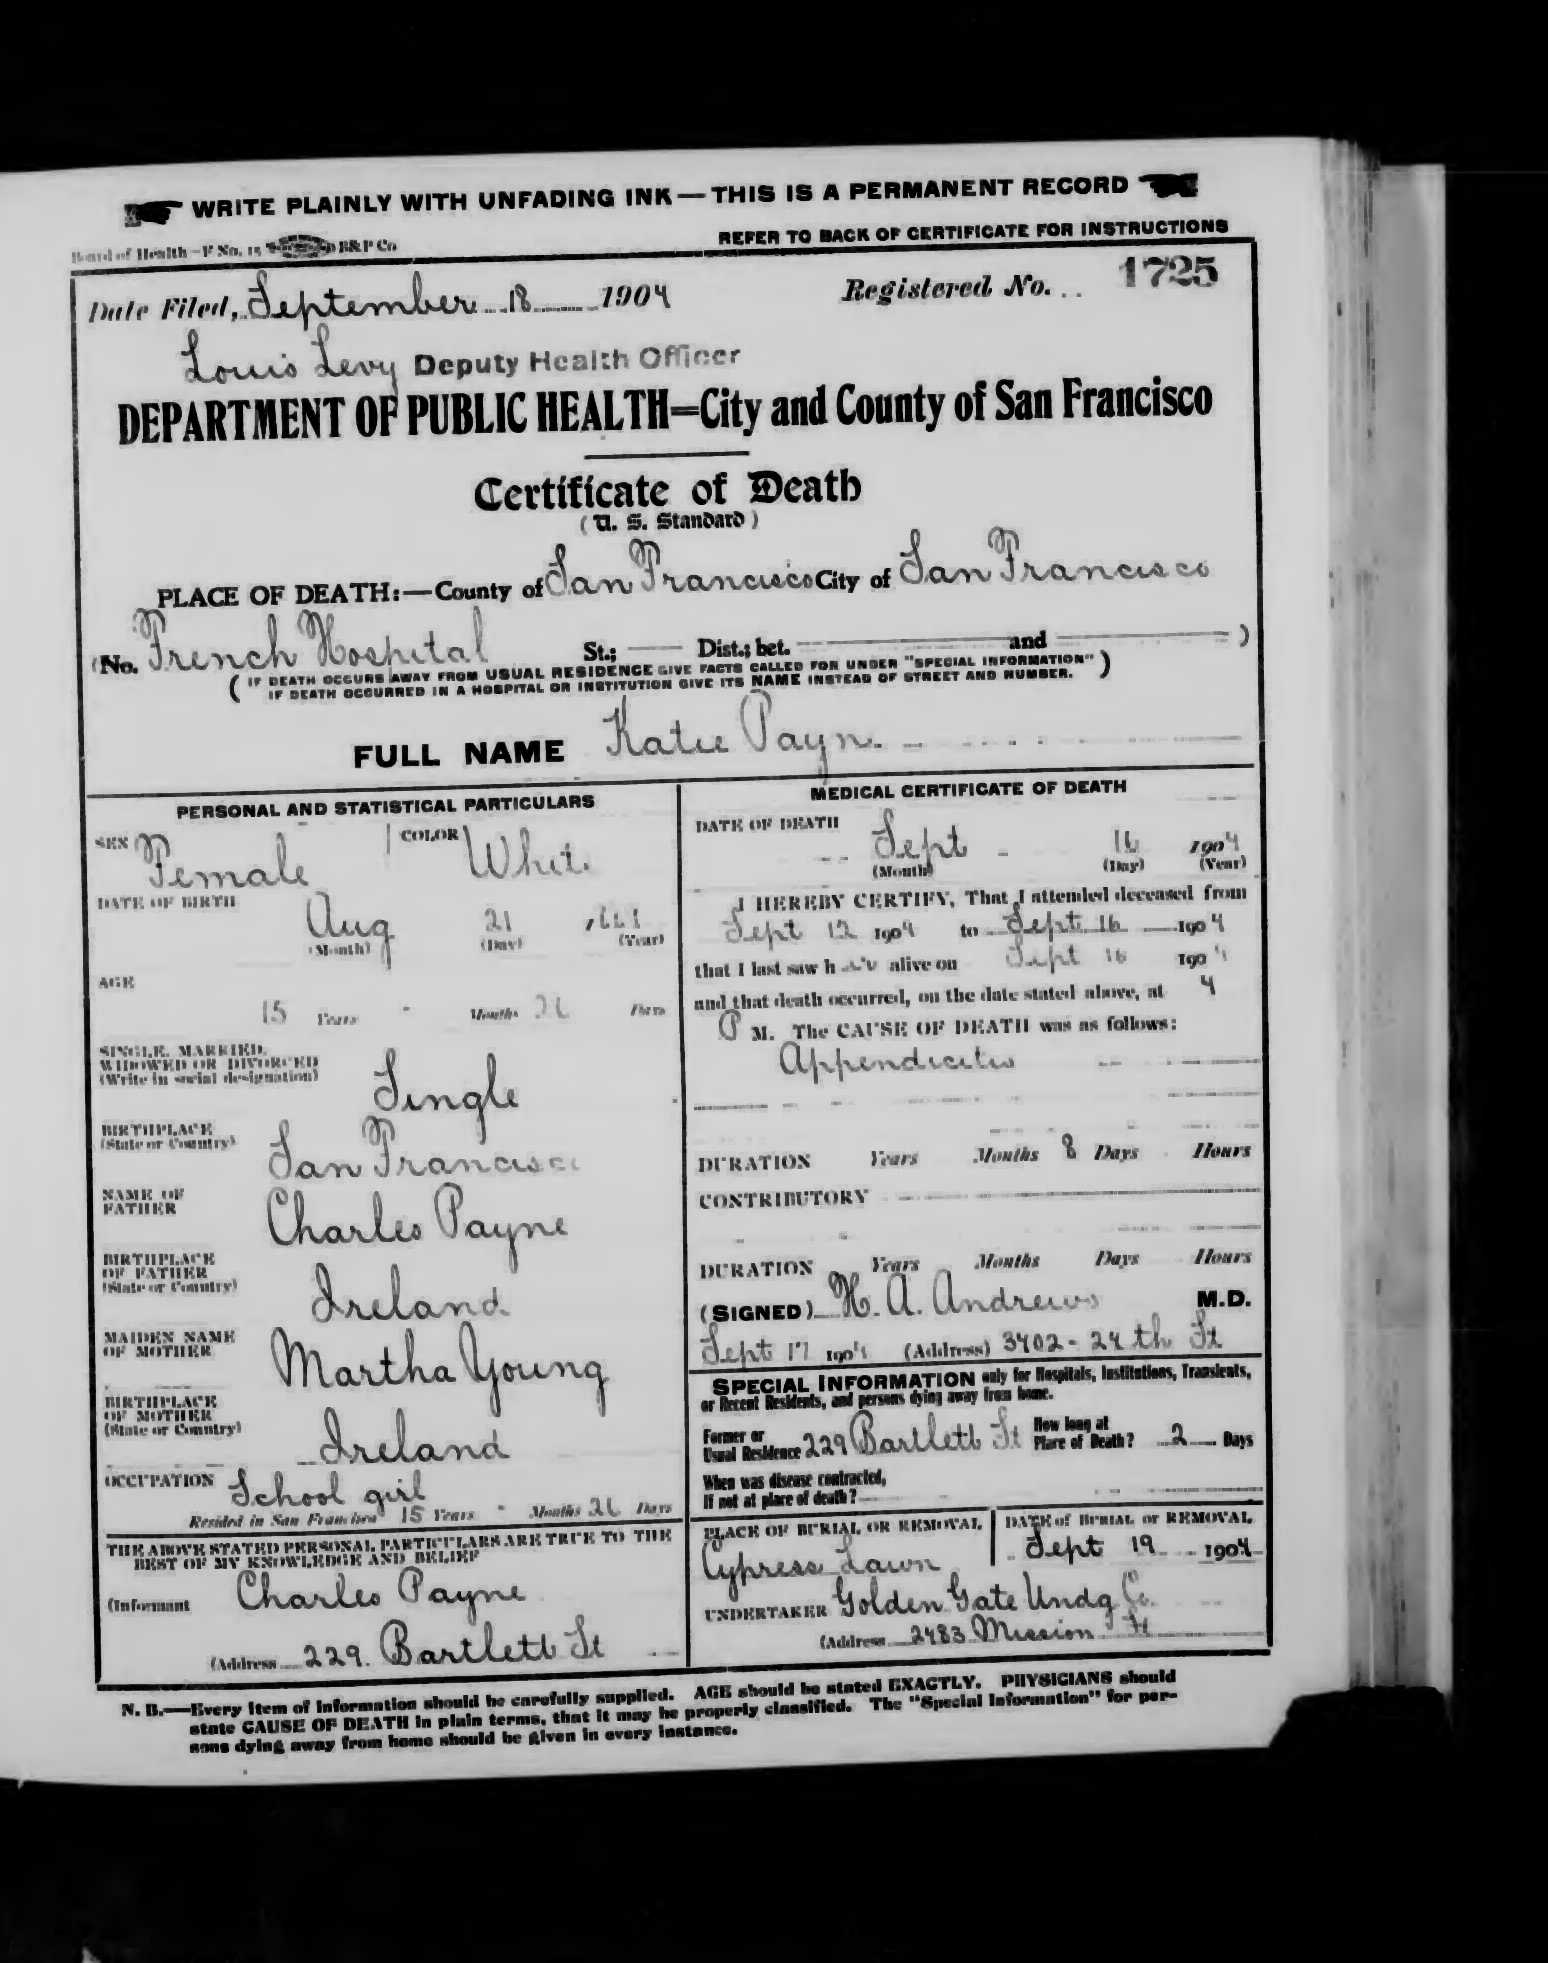 WRITE PLAINLY WITH UNFADING INK — THIS IS A PERMANENT RECORD
Board of Health—F No. 15 B&P Co
REFER TO BACK OF CERTIFICATE FOR INSTRUCTIONS
Date Filed, September 18 1904 Registered No. 1725
Louis Levy Deputy Health Officer
DEPARTMENT OF PUBLIC HEALTH=City and County of San Francisco
Certificate of Death
(U. S. Standard)
PLACE OF DEATH:—County of San Francisco City of San Francisco
(No. French Hospital St.; —— Dist.; bet. —— and —— )
( IF DEATH OCCURS AWAY FROM USUAL RESIDENCE GIVE FACTS CALLED FOR UNDER "SPECIAL INFORMATION" )
IF DEATH OCCURRED IN A HOSPITAL OR INSTITUTION GIVE ITS NAME INSTEAD OF STREET AND NUMBER.
FULL NAME Katie Payne
PERSONAL AND STATISTICAL PARTICULARS
SEX Female COLOR White
DATE OF BIRTH
Aug 21
(Month) (Day) (Year)
AGE
15 Years - Months 26 Days
SINGLE, MARRIED,
WIDOWED OR DIVORCED
(Write in social designation) Single
BIRTHPLACE
(State or Country) San Francisco
NAME OF
FATHER Charles Payne
BIRTHPLACE
OF FATHER
(State or Country) Ireland
MAIDEN NAME
OF MOTHER Martha Young
BIRTHPLACE
OF MOTHER
(State or Country) Ireland
OCCUPATION School girl
Resided in San Francisco 15 Years - Months 26 Days
THE ABOVE STATED PERSONAL PARTICULARS ARE TRUE TO THE
BEST OF MY KNOWLEDGE AND BELIEF
(Informant Charles Payne
(Address 229. Bartlett St
MEDICAL CERTIFICATE OF DEATH
DATE OF DEATH
Sept 16 1904
(Month) (Day) (Year)
I HEREBY CERTIFY, That I attended deceased from
Sept 12 1904 to Sept 16 1904
that I last saw her alive on Sept 16 1904
and that death occurred, on the date stated above, at 4
P M. The CAUSE OF DEATH was as follows:
Appendicitis
DURATION Years Months 8 Days Hours
CONTRIBUTORY
DURATION Years Months Days Hours
(SIGNED) H. A. Andrews M.D.
Sept 17 1904 (Address) 3402 - 24th St
SPECIAL INFORMATION only for Hospitals, Institutions, Transients,
or Recent Residents, and persons dying away from home.
Former or
Usual Residence 229 Bartlett St How long at
Place of Death? 2 Days
When was disease contracted,
If not at place of death?
PLACE OF BURIAL OR REMOVAL
Cypress Lawn
DATE of BURIAL or REMOVAL
Sept 19 1904
UNDERTAKER Golden Gate Undg Co.
(Address 2483 Mission St
N. B.—Every item of information should be carefully supplied. AGE should be stated EXACTLY. PHYSICIANS should
state CAUSE OF DEATH in plain terms, that it may be properly classified. The "Special Information" for per-
sons dying away from home should be given in every instance.